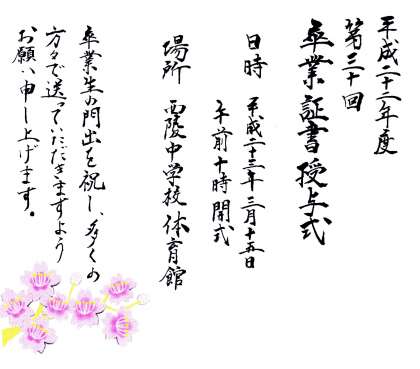 平成二十二年度
第三十回
卒業証書授与式
日時 平成二十三年三月十五日
午前十時開式
場所 西陵中学校体育館
卒業生の門出を祝し、多くの
方々で送っていただきますよう
お願い申し上げます。